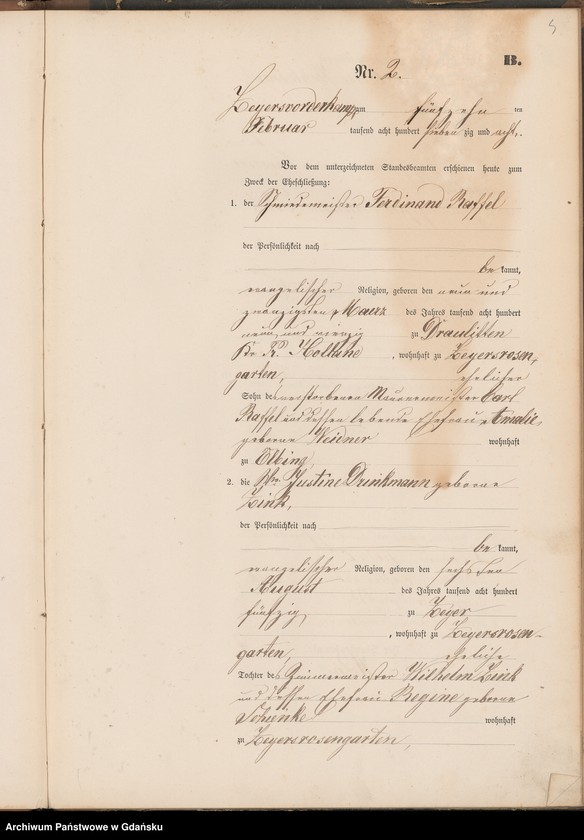 5
B.
Nr. 2.
Zeyersvorderkampen am fünfzehn ten
Februar tausend acht hundert sieben zig und acht.
Vor dem unterzeichneten Standesbeamten erschienen heute zum
Zweck der Eheschließung:
1. der Schmiedemeister Ferdinand Raffel
der Persönlichkeit nach
be kannt,
evangelischer Religion, geboren den neun und
zwanzigsten Maerz des Jahres tausend acht hundert
neun und vierzig zu Draulitten
Kr. Pr. Holland, wohnhaft zu Zeyersrosen-
garten, ehelicher
Sohn des verstorbenen Maurermeister Carl
Raffel und dessen lebende Ehefrau Amalie,
geborne Weidner wohnhaft
zu Elbing,
2. die Justine Drinkmann geborne
Zink,
der Persönlichkeit nach
be kannt,
evangelischer Religion, geboren den sechsten
August des Jahres tausend acht hundert
fünfzig, zu Zeyer
, wohnhaft zu Zeyersrosen-
garten, eheliche
Tochter des Zimmermeister Wilhelm Zink
und dessen Ehefrau Regine geborne
Schienke wohnhaft
zu Zeyersrosengarten,
Archiwum Państwowe w Gdańsku